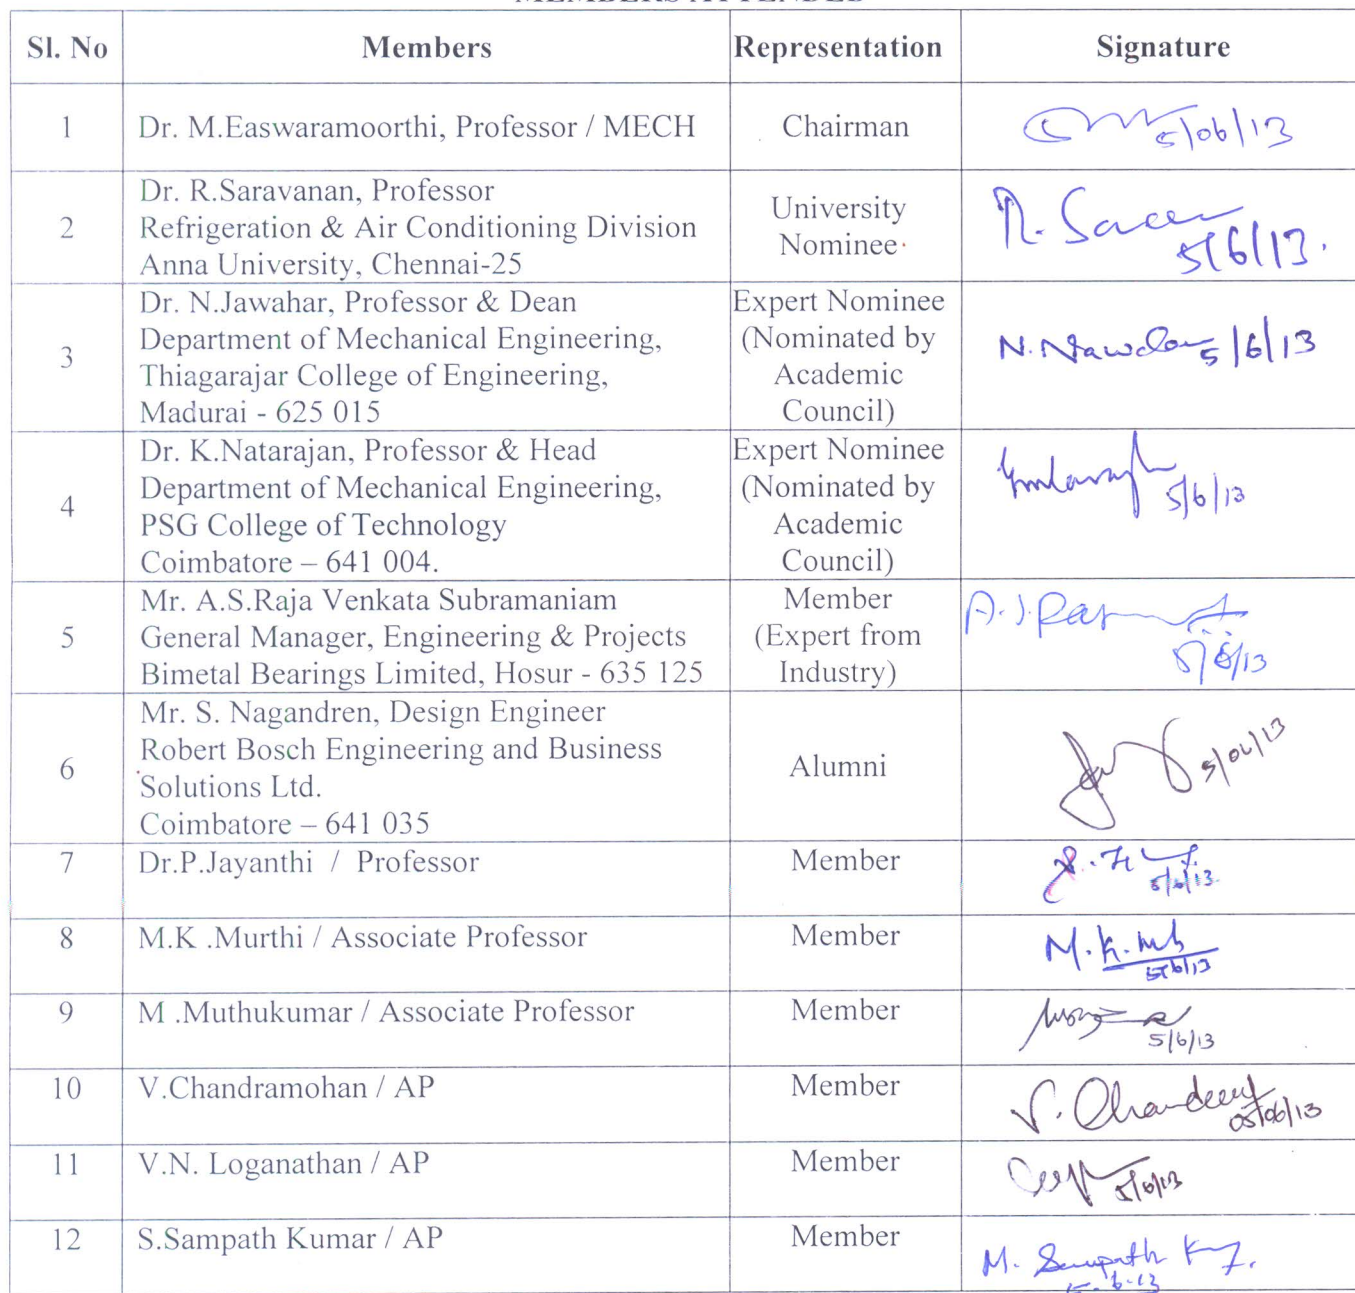 MEMBERS ATTENDED
Sl. No Members Representation Signature
1 Dr. M.Easwaramoorthi, Professor / MECH Chairman 5/06/13
2 Dr. R.Saravanan, Professor
Refrigeration & Air Conditioning Division
Anna University, Chennai-25
University
Nominee
R. 5/6/13.
3 Dr. N.Jawahar, Professor & Dean
Department of Mechanical Engineering,
Thiagarajar College of Engineering,
Madurai - 625 015
Expert Nominee
(Nominated by
Academic
Council)
N. 5/6/13
4 Dr. K.Natarajan, Professor & Head
Department of Mechanical Engineering,
PSG College of Technology
Coimbatore – 641 004.
Expert Nominee
(Nominated by
Academic
Council)
5/6/13
5 Mr. A.S.Raja Venkata Subramaniam
General Manager, Engineering & Projects
Bimetal Bearings Limited, Hosur - 635 125
Member
(Expert from
Industry)
5/6/13
6 Mr. S. Nagandren, Design Engineer
Robert Bosch Engineering and Business
Solutions Ltd.
Coimbatore – 641 035
Alumni
5/06/13
7 Dr.P.Jayanthi / Professor Member
5/6/13
8 M.K .Murthi / Associate Professor Member M.K.
5/6/13
9 M .Muthukumar / Associate Professor Member
5/6/13
10 V.Chandramohan / AP Member V.
05/06/13
11 V.N. Loganathan / AP Member
5/6/13
12 S.Sampath Kumar / AP Member
M. Sampath
5.6.13